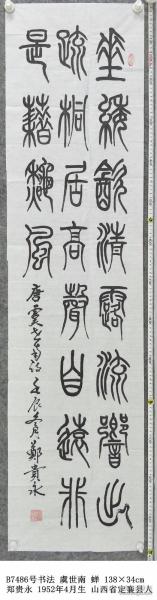 垂緌飲清露流響出
疏桐居高聲自遠非
是藉秋風
唐虞世南詩 壬辰 鄭貴永
B7486号书法 虞世南 蝉 138×34cm
郑贵永 1952年4月生 山西省定襄县人